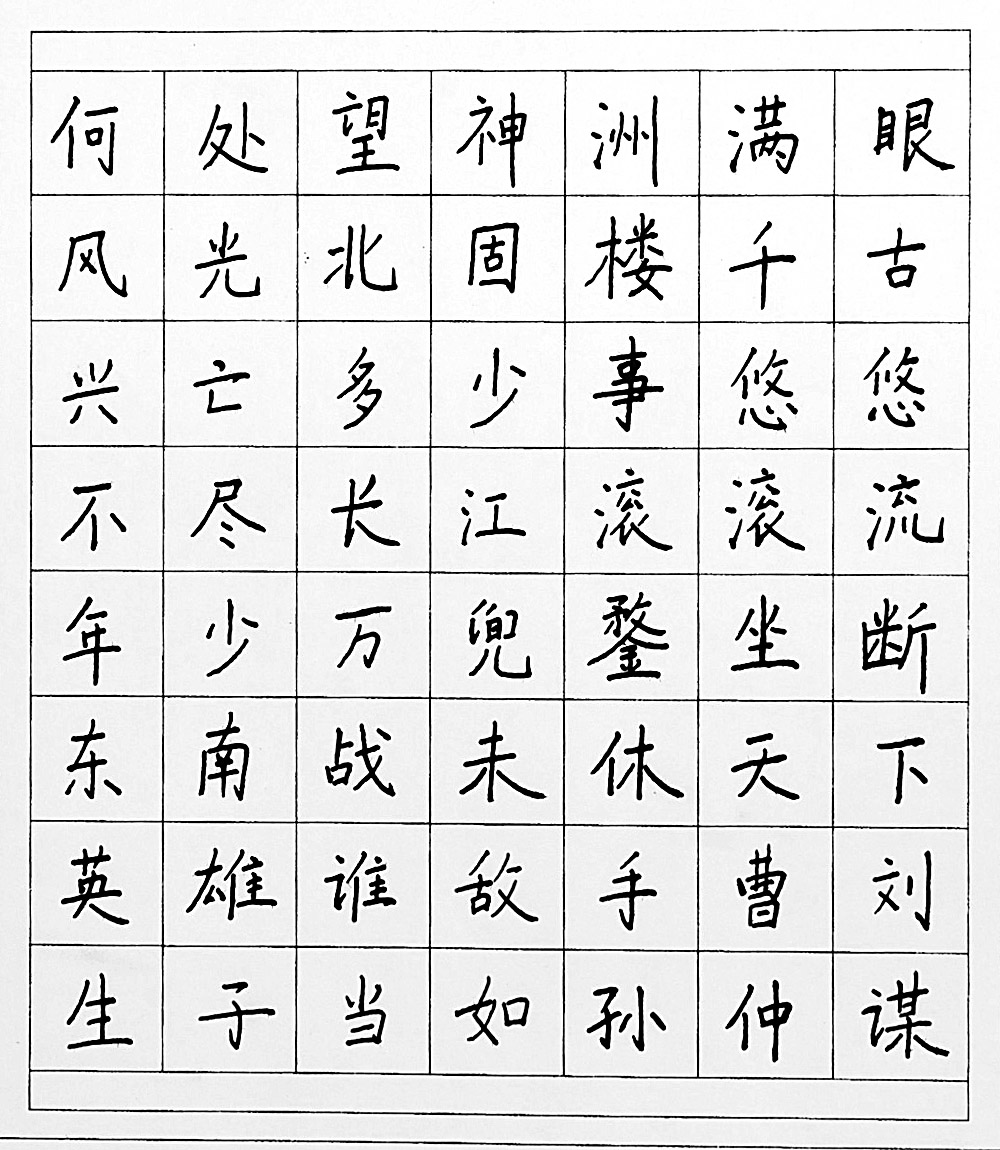 何处望神洲满眼
风光北固楼千古
兴亡多少事悠悠
不尽长江滚滚流
年少万兜鍪坐断
东南战未休天下
英雄谁敌手曹刘
生子当如孙仲谋